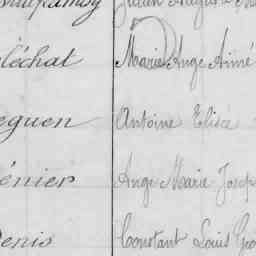 léchat Marie Ange Aimé
eguen Antoine Elisée
énier Ange Marie Josep
Denis Constant Louis